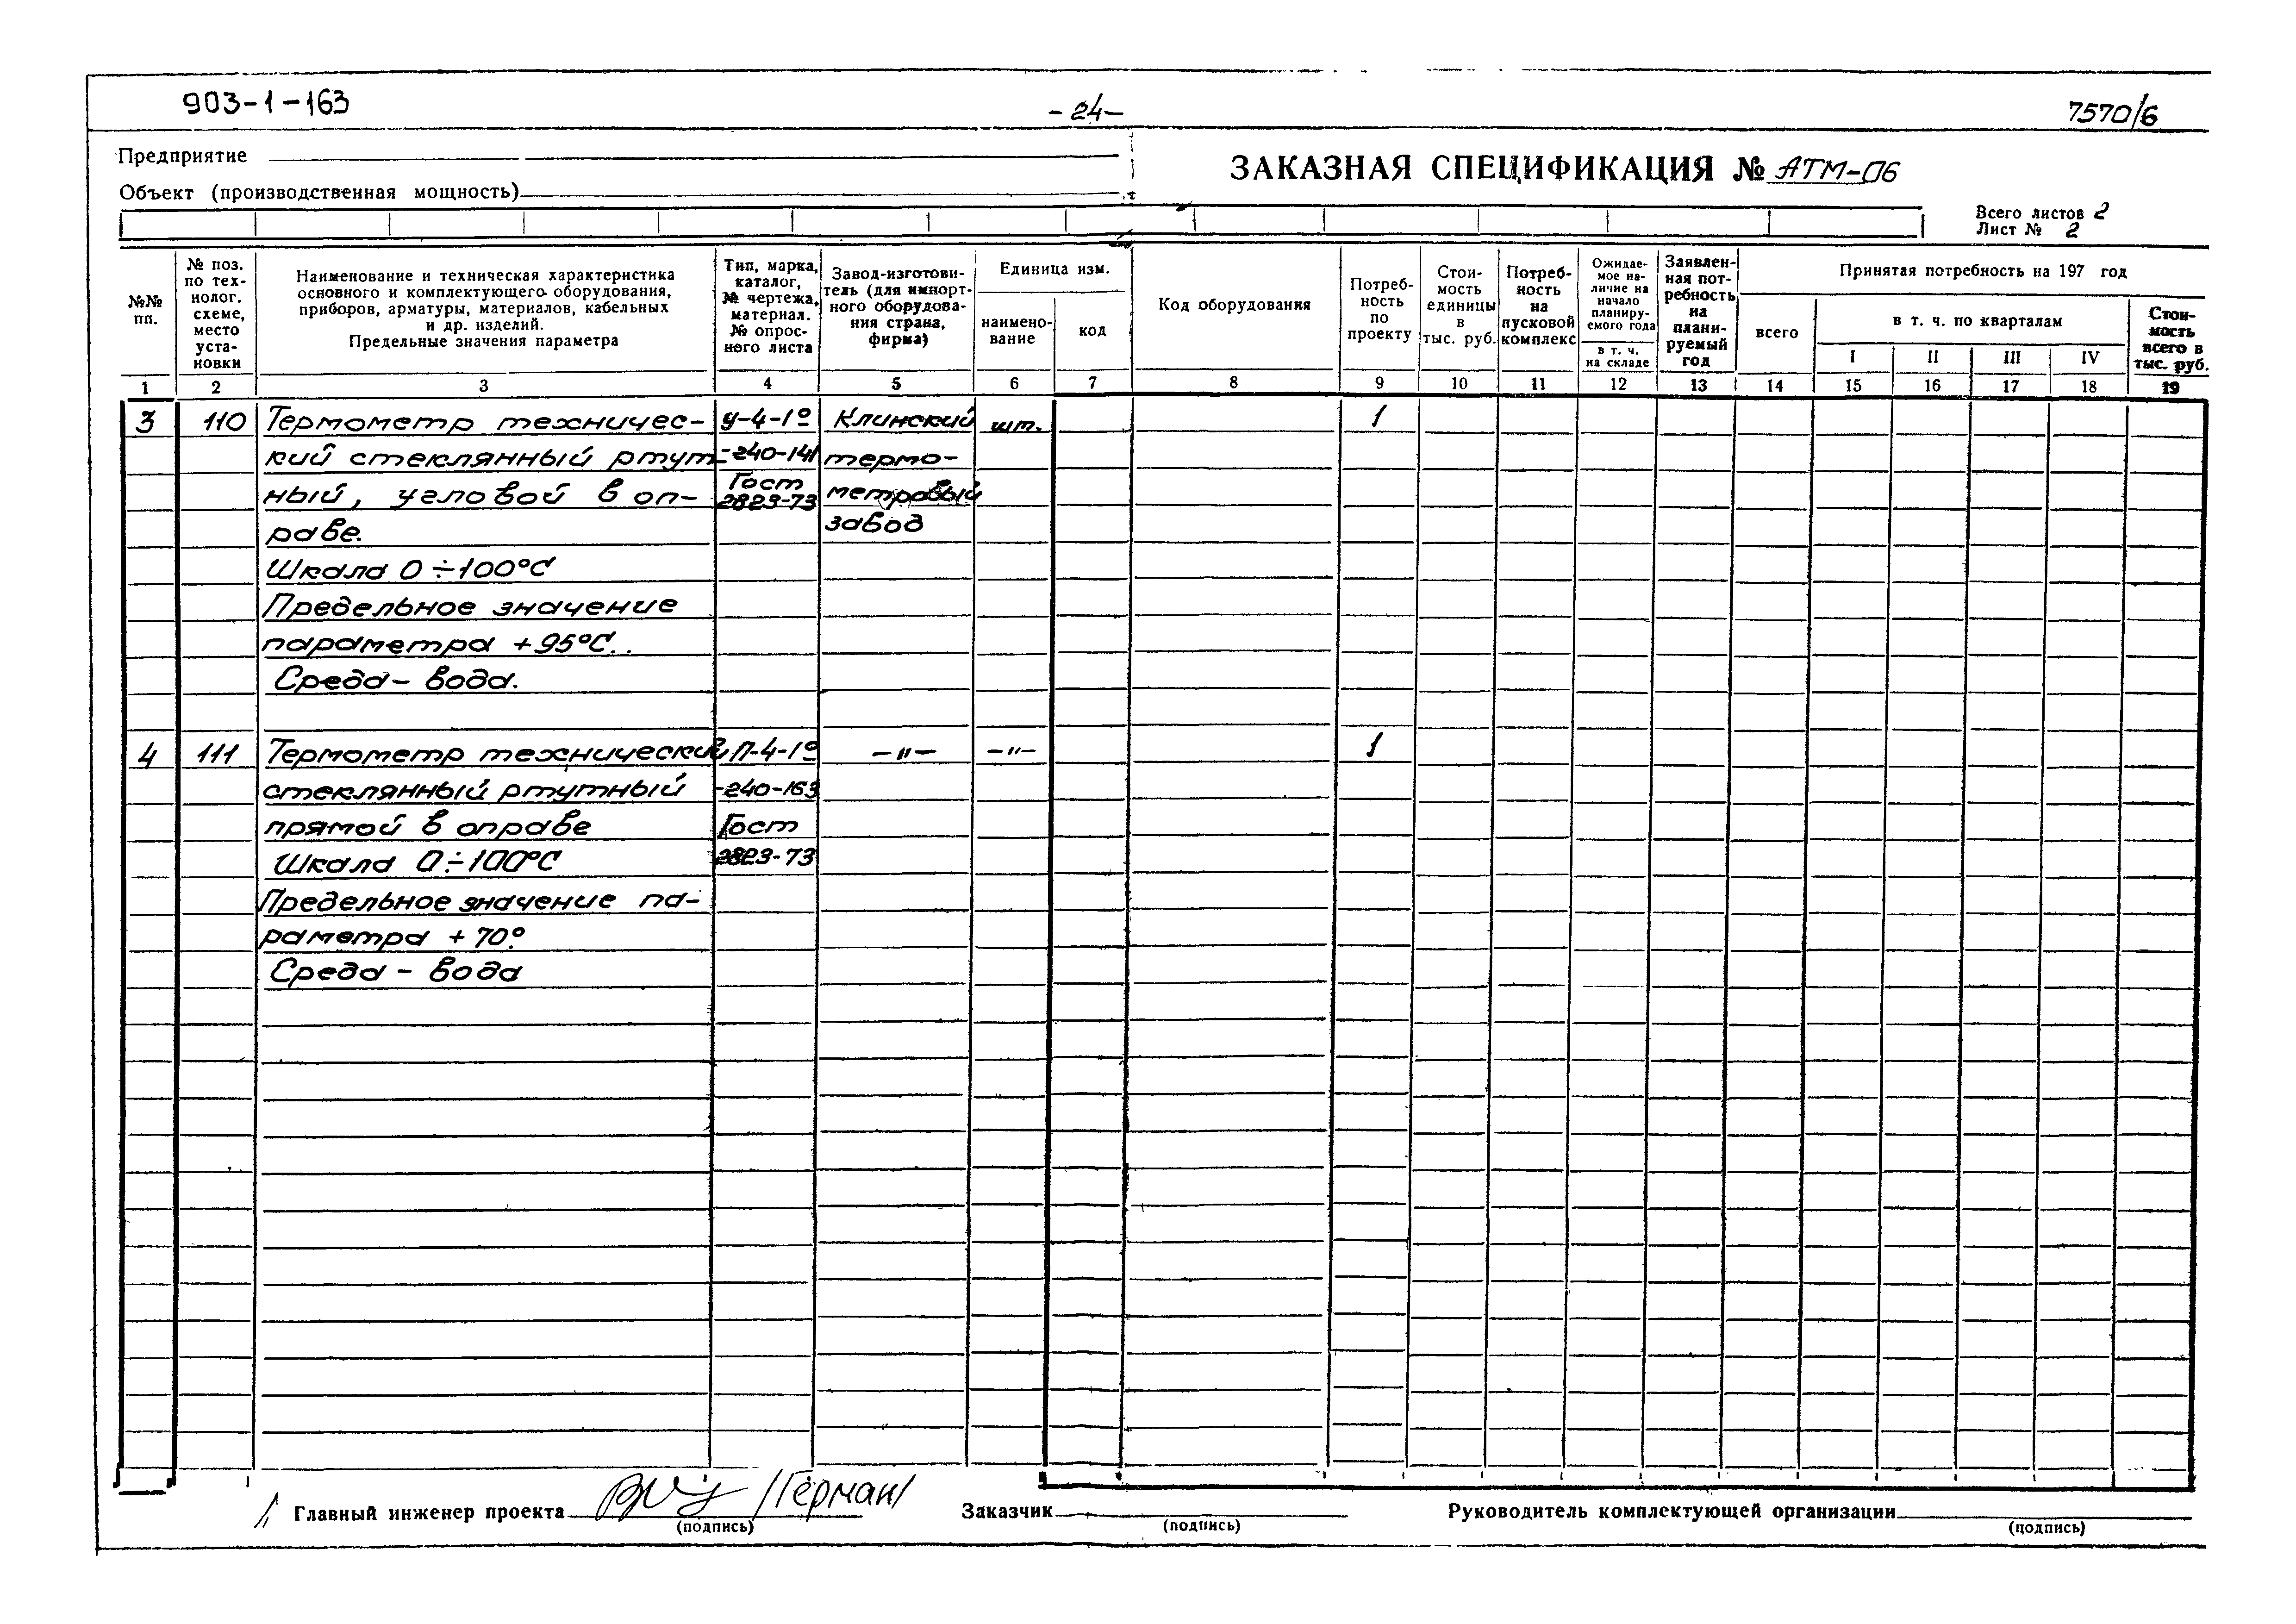 903-1-163
-24-
7570/6
Предприятие
ЗАКАЗНАЯ СПЕЦИФИКАЦИЯ № АТМ-06
Объект (производственная мощность)
Всего листов 2
Лист № 2
№№ пп.
№ поз. по тех- нолог. схеме, место уста- новки
Наименование и техническая характеристика
основного и комплектующего оборудования,
приборов, арматуры, материалов, кабельных
и др. изделий.
Предельные значения параметра
Тип, марка, каталог, № чертежа, материал. № опрос- ного листа
Завод-изготови- тель (для импорт- ного оборудова- ния страна, фирма)
Единица изм.
наимено- вание
код
Код оборудования
Потреб- ность по проекту
Стои- мость единицы в тыс. руб.
Потреб- ность на пусковой комплекс
Ожидае- мое на- личие на начало планиру- емого года
в т. ч. на складе
Заявлен- ная пот- ребность на плани- руемый год
Принятая потребность на 197 год
всего
в т. ч. по кварталам
I II III IV
Стои- мость всего в тыс. руб.
1 2 3 4 5 6 7 8 9 10 11 12 13 14 15 16 17 18 19
3 110 Термометр техничес- У-4-1° Клинский шт. 1
кий стеклянный ртут- -240-141 термо-
ный, угловой в оп- Гост 2823-73 метровый
раве. завод
Шкала 0÷100°С
Предельное значение
параметра +95°С.
Среда - вода.
4 111 Термометр технический П-4-1° -"- -"- 1
стеклянный ртутный -240-163
прямой в оправе Гост
Шкала 0÷100°С 2823-73
Предельное значение па-
раметра + 70°
Среда - вода
Главный инженер проекта /Герман/
(подпись)
Заказчик
(подпись)
Руководитель комплектующей организации
(подпись)